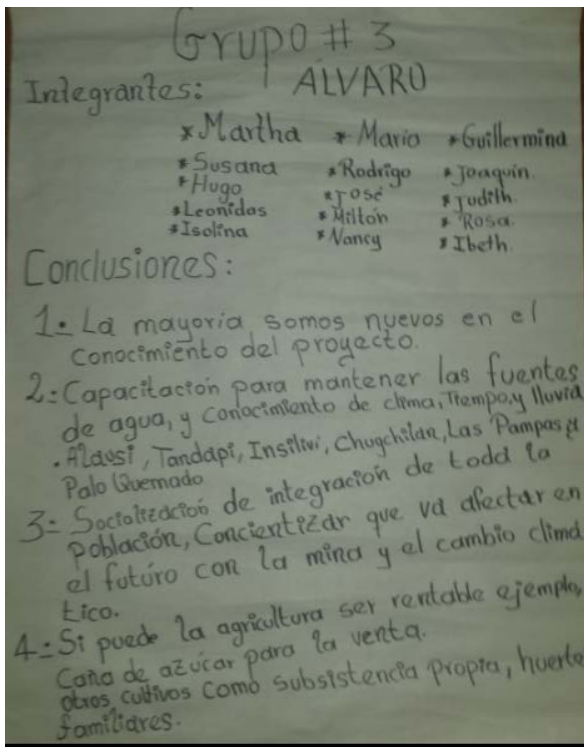 Grupo # 3
Integrantes: ALVARO
*Martha *Mario *Guillermina
*Susana *Rodrigo *Joaquín.
*Hugo *José *Judith.
*Leonidas *Miltón *Rosa.
*Isolina *Nancy *Ibeth.
Conclusiones:
1.- La mayoría somos nuevos en el
conocimiento del proyecto.
2.- Capacitación para mantener las fuentes
de agua, y conocimiento de clima, Tiempo, y lluvia
. Alausi, Tandapi, Insilivi, Chugchilan, Las Pampas y
Palo Quemado
3.- Sociolización de integración de toda la
población, Concientizar que va afectar en
el futúro con la mina y el cambio climá
tico.
4.- Si puede la agricultura ser rentable ejemplo,
Caña de azúcar para la venta.
otros cultivos como subsistencia propia, huerto
familiares.